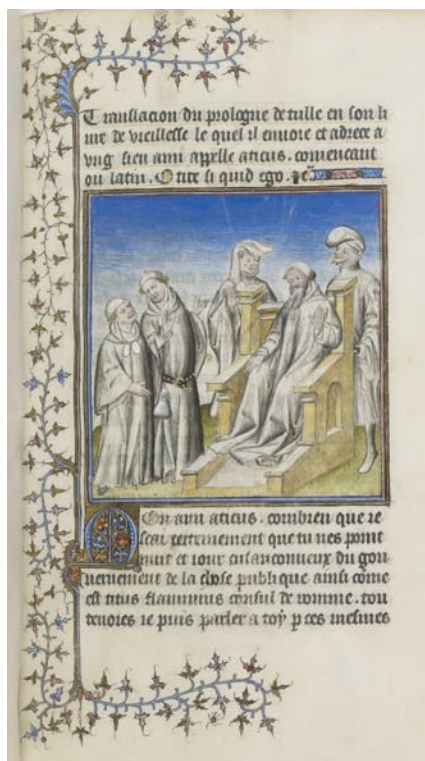 Translacion du prologue de tulle en son li
ure de vieillesse le quel il enuoie et adrece a
vng sien ami appelle aticus. comencant
ou latin. O tite si quid ego. &c.
Mon ami aticus. combien que ie
scai certeinement que tu nes point
nuit et iour cusanconneux du gou
uernement de la chose publique ainsi come
est titus flaminius consul de romme. tou
teuoies ie puis parler a toy p ces mesmes